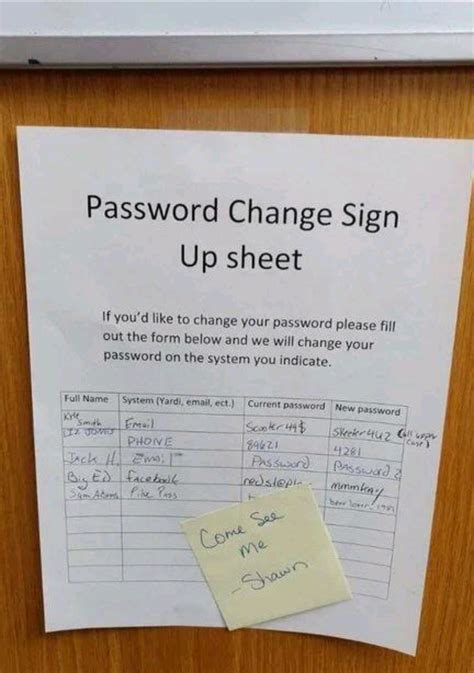 Password Change Sign
Up sheet
If you'd like to change your password please fill
out the form below and we will change your
password on the system you indicate.
Full Name System (Yardi, email, ect.) Current password New password
Kyle Smith Email Scooter 49$ Skeeter4U2 (all upper case)
Liz Jones PHONE 89621 4281
Jack H. EMAIL PASSWORD PASSWORD 2
Big Ed facebook
Sam Adams Pike Pass
Come See
Me
-Shawn